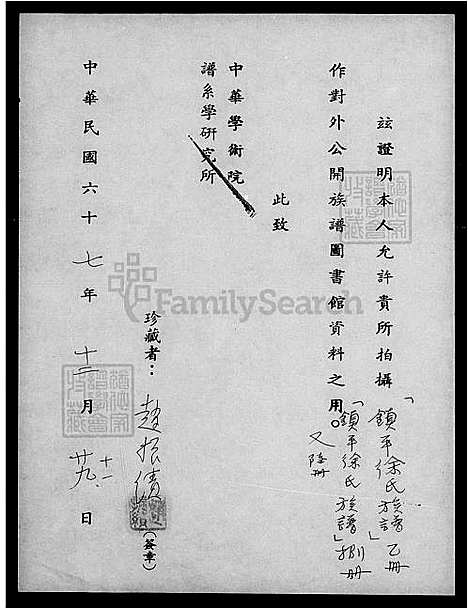 茲證明本人允許貴所拍攝「鎮平徐氏族譜」乙冊
「鎮平徐氏族譜」捌冊
作對外公開族譜圖書館資料之用。
又陸冊
此致
中華學術院
譜系學研究所
珍藏者：趙振績(簽章)
中華民國六十七年十二月廿九日
十一
FamilySearch